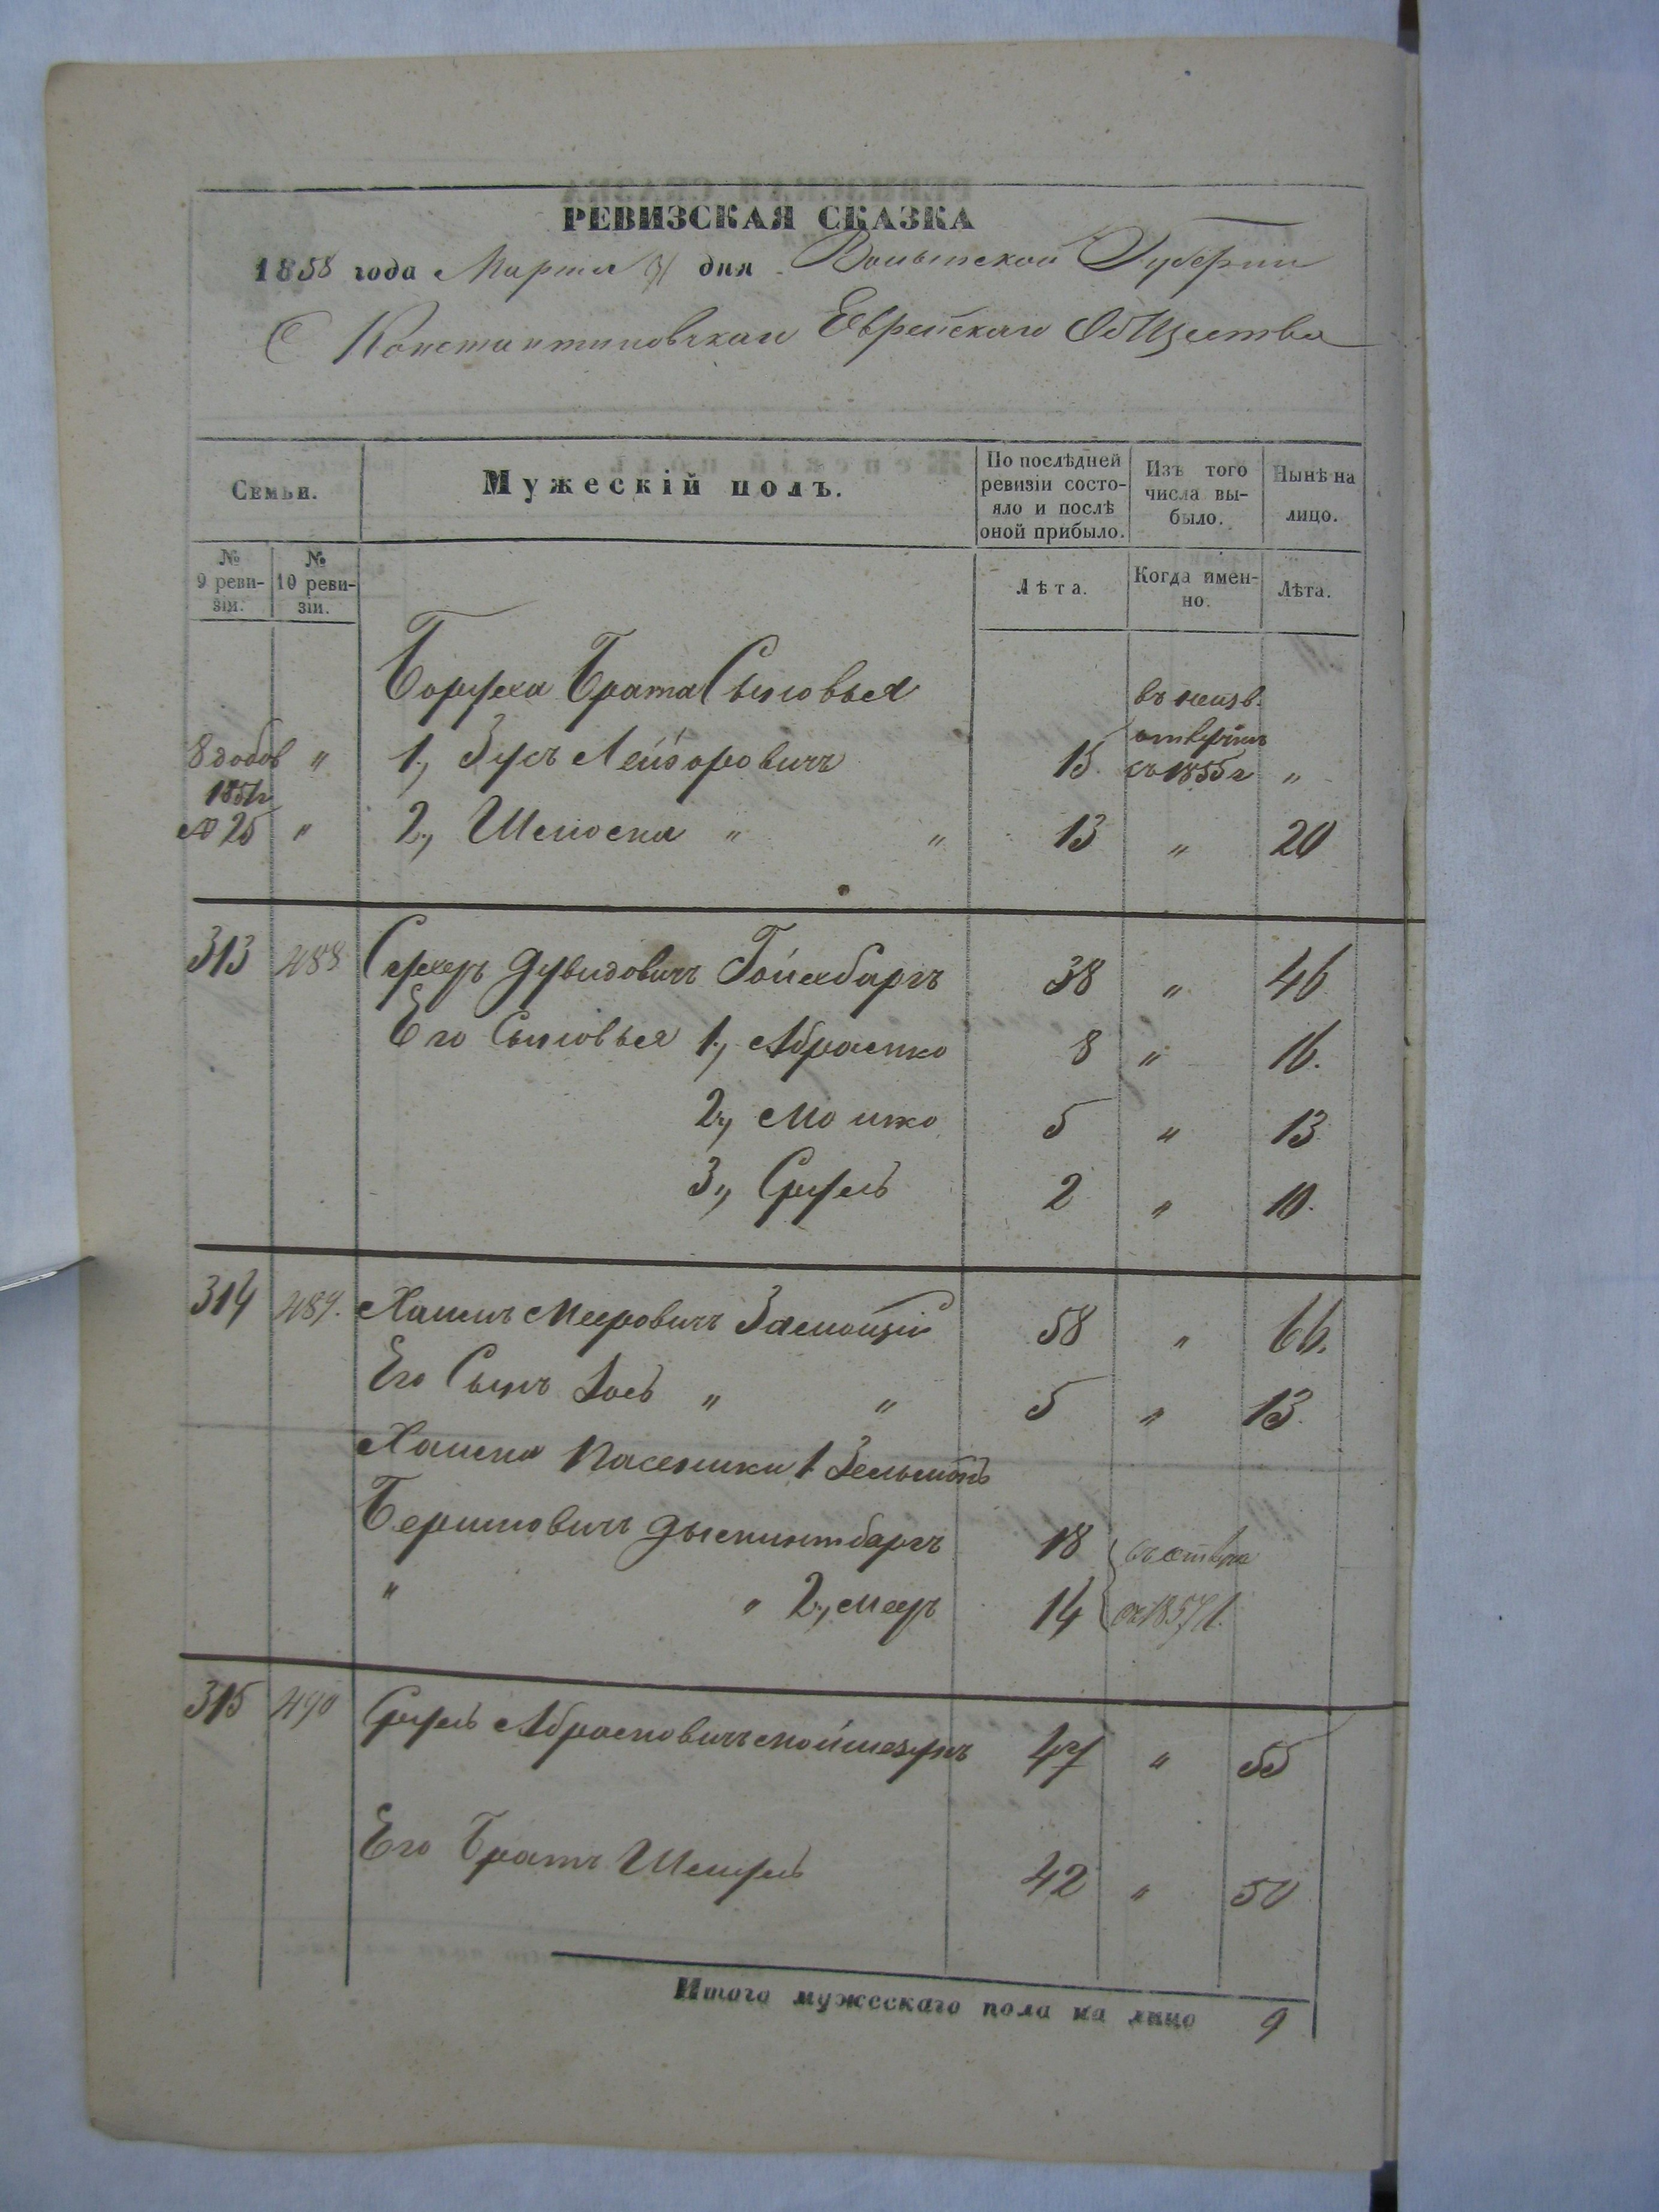 РЕВИЗСКАЯ СКАЗКА
1858 года Марта 31 дня Волынской Губернии
С Константиновскаго Еврейскаго Общества
Семьи.
Мужескій полъ.
По послѣдней ревизіи состояло и послѣ оной прибыло.
Изъ того числа выбыло.
Нынѣ на лицо.
№ 9 ревизіи.
№ 10 ревизіи.
Лѣта.
Когда именно.
Лѣта.
Боруха Брата Сыновья
8 добов " 1., Зусь Лейзоровичъ 15 въ неизв. съ 1855 г "
1851 г
№ 25 " 2., " " 13 " 20
313 488 Сухеръ Дувидовичъ Гойхбаргъ 38 " 46
Его Сыновья 1., Абрамко 8 " 16.
2., Мошко 5 " 13
3., Сруль 2 " 10.
314 489. Хаимъ Мееровичъ 58 " 66.
Его Сынъ Іось " " 5 " 13.
Хаима Пасынки 1 Зельманъ
Беримовичъ 18
" " 2., Мееръ 14 съ 1857 г.
315 490 Сруль Абрамовичъ 47 " 55
Его Братъ Шмуль 42 " 50
Итого мужескаго пола на лицо 9